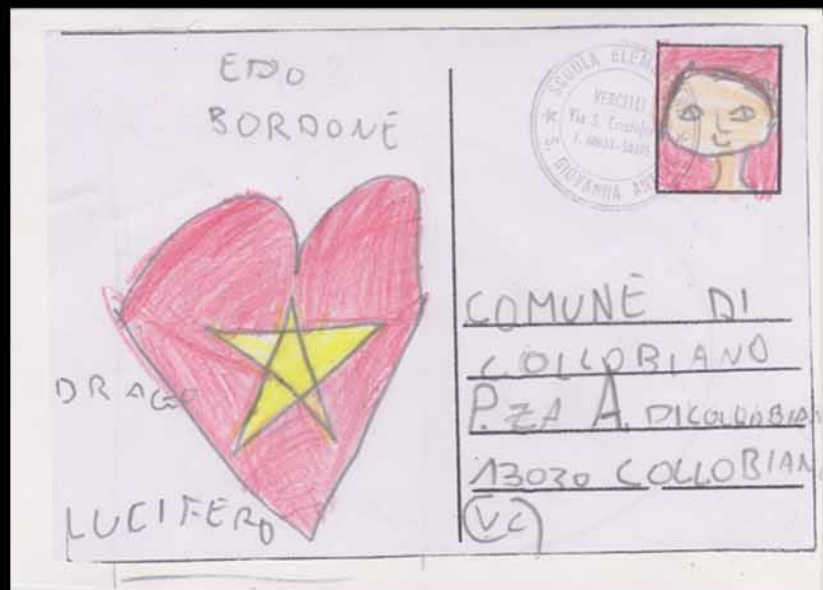 EDO
BORDONE
DRAGO
LUCIFERO
SCUOLA ELEM
VERCELLI
Via S.
S. GIOVANNA ANT
COMUNE DI
COLLOBIANO
P.ZA A. DI COLLOBIA
13030 COLLOBIAN
(VC)